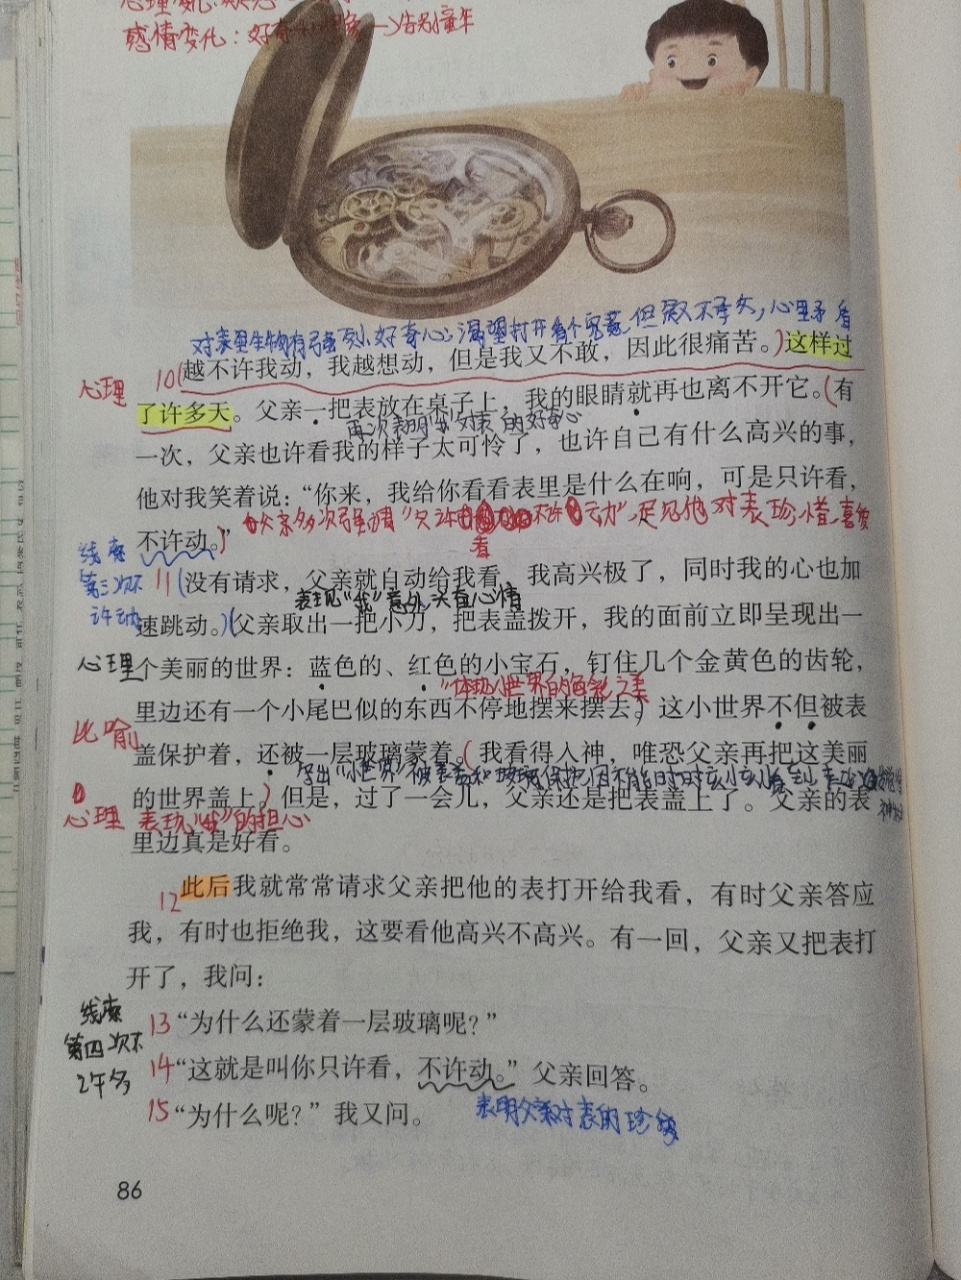 感情变化：好奇 →告别童年
心理
10(越不许我动，我越想动，但是我又不敢，因此很痛苦。)这样过
了许多天。父亲一把表放在桌子上，我的眼睛就再也离不开它。(有
再次表明"我"对表的好奇心
一次，父亲也许看我的样子太可怜了，也许自己有什么高兴的事，
他对我笑着说：“你来，我给你看看表里是什么在响，可是只许看，
不许动。”
线索
第三次不
许动
11(没有请求，父亲就自动给我看，我高兴极了，同时我的心也加
表现"我"意外
速跳动。)(父亲取出一把小刀，把表盖拨开，我的面前立即呈现出一
心理
个美丽的世界：蓝色的、红色的小宝石，钉住几个金黄色的齿轮，
里边还有一个小尾巴似的东西不停地摆来摆去。)这小世界不但被表
比喻
盖保护着，还被一层玻璃蒙着。(我看得入神，唯恐父亲再把这美丽
的世界盖上。)但是，过了一会儿，父亲还是把表盖上了。父亲的表
心理 表现"我"的担心
里边真是好看。
12此后我就常常请求父亲把他的表打开给我看，有时父亲答应
我，有时也拒绝我，这要看他高兴不高兴。有一回，父亲又把表打
开了，我问：
线索
第四次不
13“为什么还蒙着一层玻璃呢？”
14“这就是叫你只许看，不许动。”父亲回答。
15“为什么呢？”我又问。
表明父亲对表的珍
86